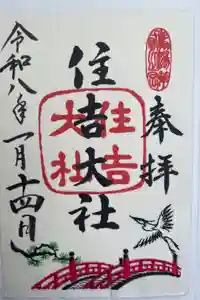 奉拝
住吉大社
住吉
大社
令和八年
一月十四日